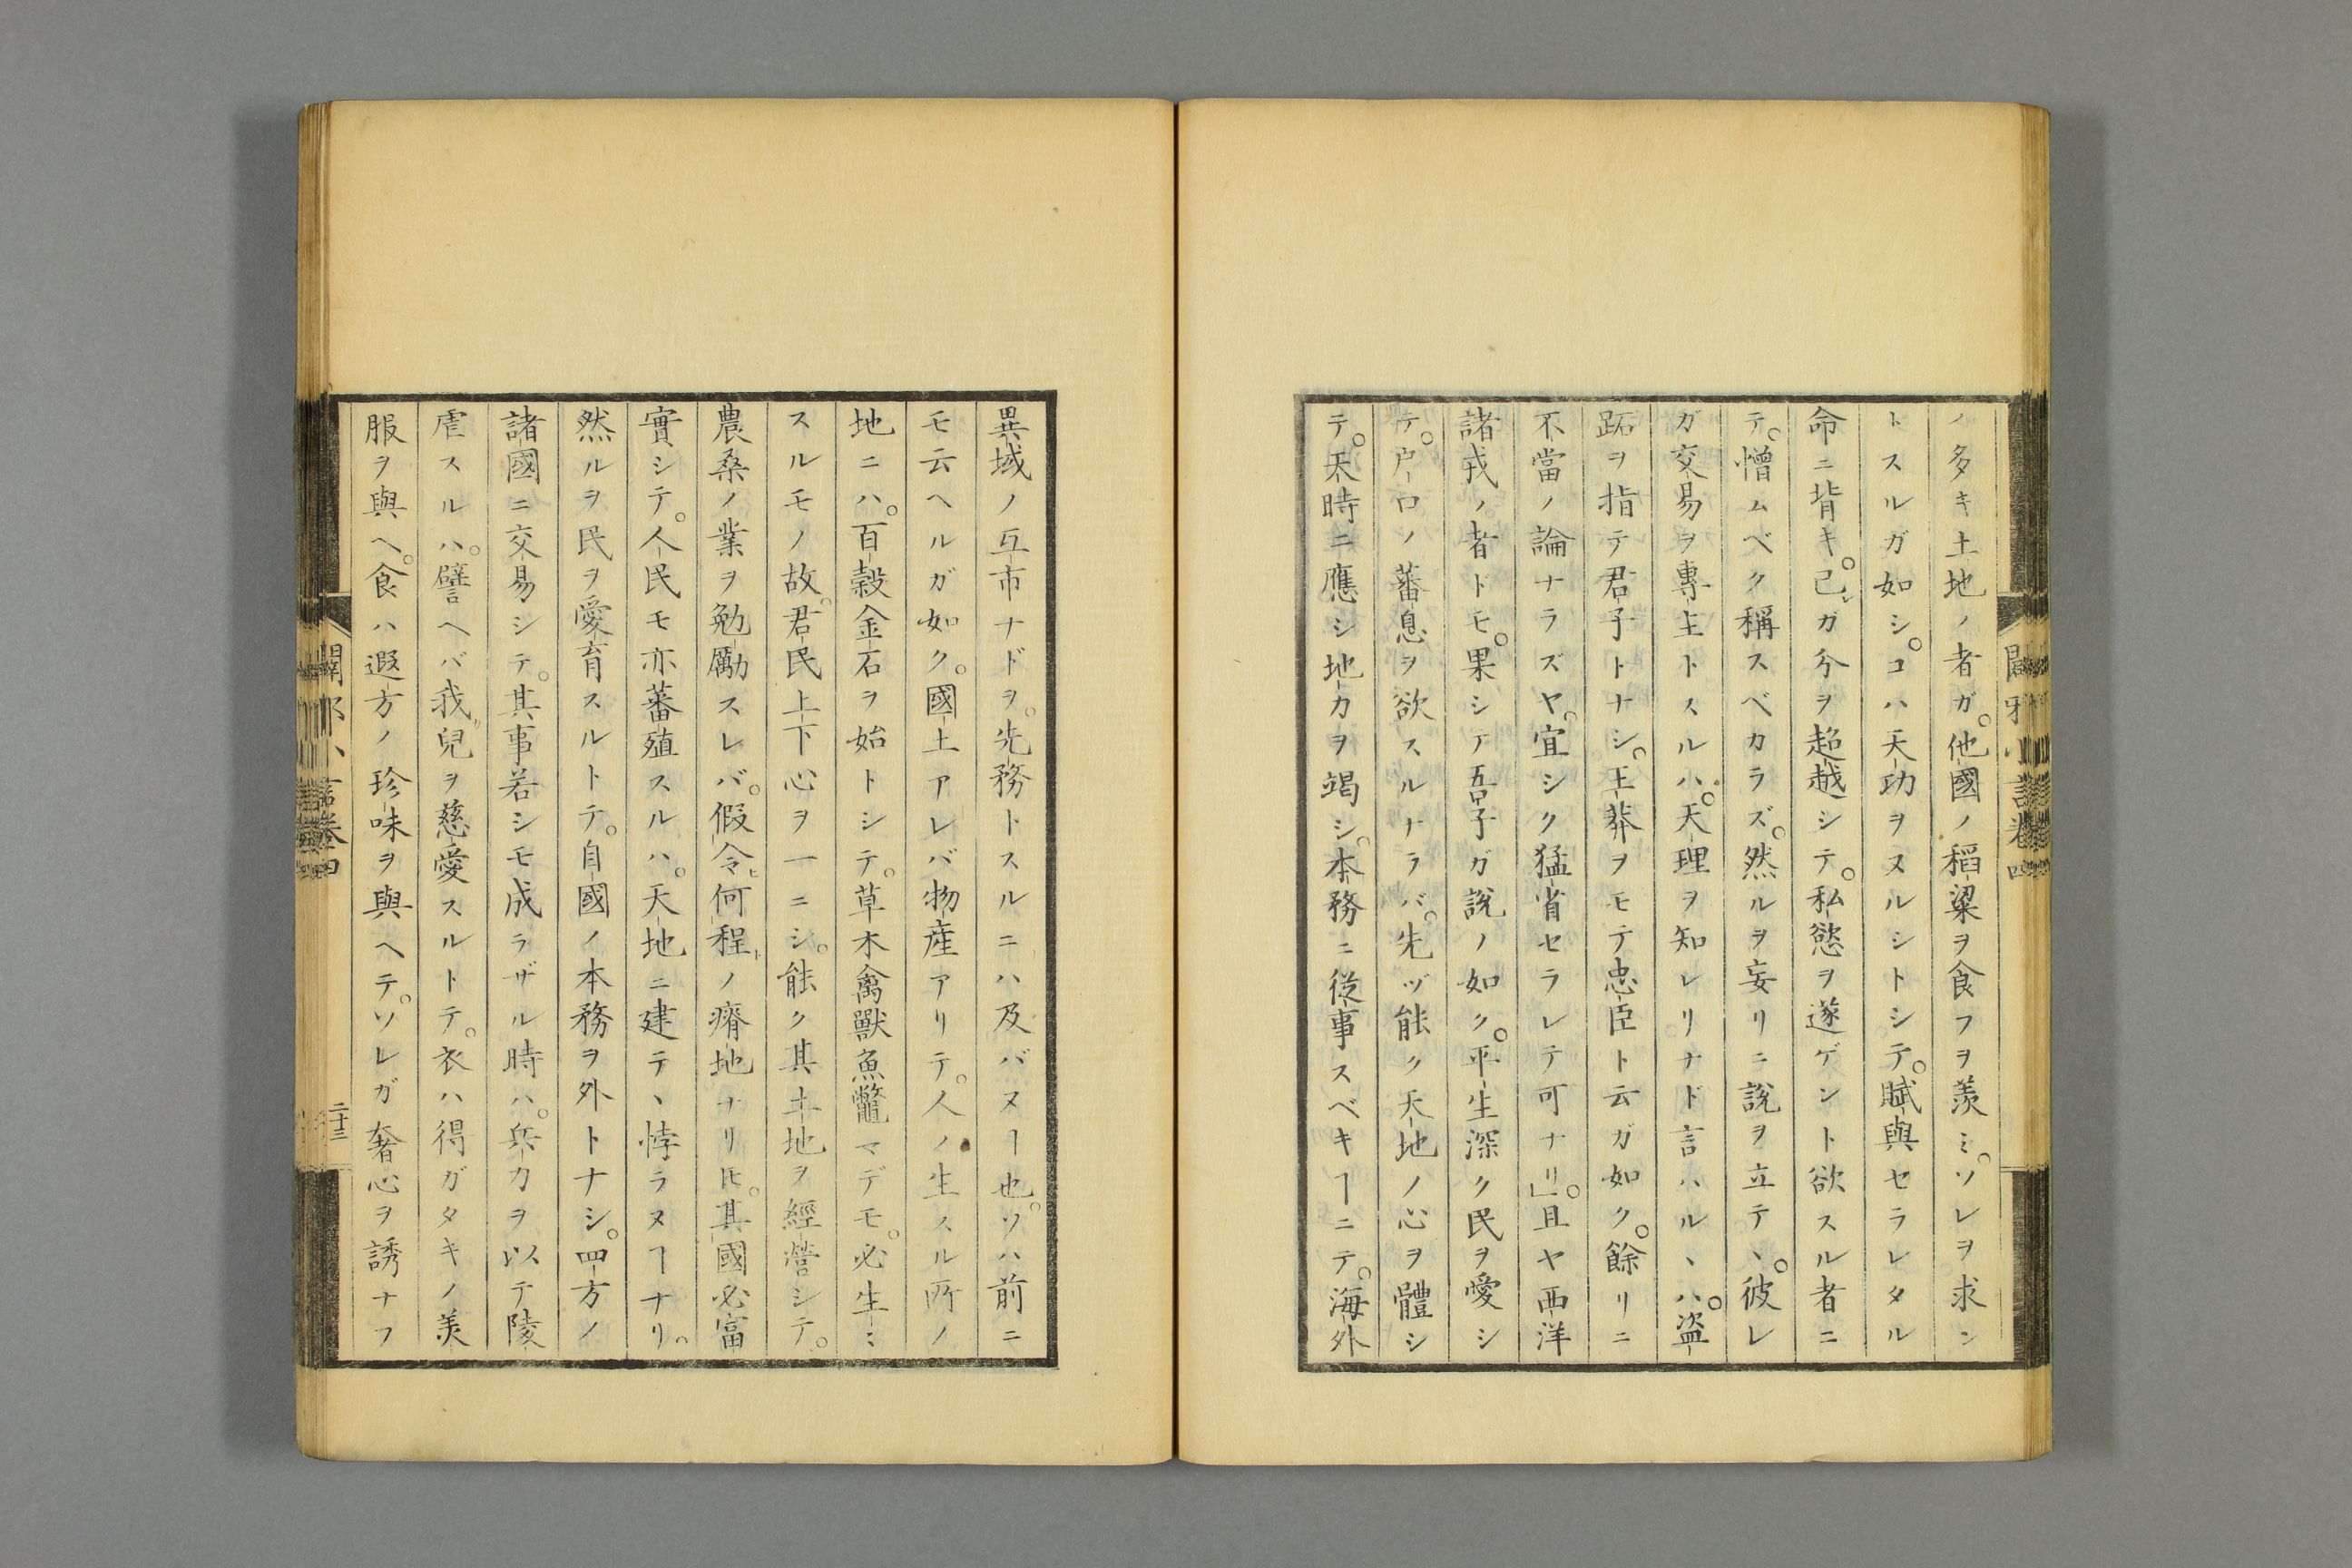 ノ多キ土地ノ者ガ。他國ノ稻粱ヲ食フヲ羨ミ。ソレヲ求ン
トスルガ如シ。コハ天功ヲヌルシトシテ。賦與セラレタル
命ニ背キ。己レガ分ヲ超越シテ。私慾ヲ遂ゲント欲スル者ニ
テ。憎ムベク稱スベカラズ。然ルヲ妄リニ說ヲ立テヽ。彼レ
ガ交易ヲ專主トスルハ。天理ヲ知レリナド言ハルヽハ。盜
跖ヲ指テ君子トナシ。王莽ヲモテ忠臣ト云ガ如ク。餘リニ
不當ノ論ナラズヤ。宜シク猛省セラレテ可ナリ」。且ヤ西洋
諸戎ノ者ドモ。果シテ吾子ガ說ノ如ク。平生深ク民ヲ愛シ
テ。戸口ノ蕃息ヲ欲スルナラバ。先ヅ能ク天地ノ心ヲ體シ
テ。天時ニ應シ地力ヲ竭シ。本務ニ從事スベキヿニテ。海外
異域ノ互市ナドヲ。先務トスルニハ及バヌヿ也。ソハ前ニ
モ云ヘルガ如ク。國土アレバ物產アリテ。人ノ生スル所ノ
地ニハ。百穀金石ヲ始トシテ。草木禽獸魚鼈マデモ。必生ミ
スルモノ故。君民上下心ヲ一ニシ。能ク其土地ヲ經營シテ。
農桑ノ業ヲ勉勵スレバ。假令ヒ何程トノ瘠地ナリ𪜈。其國必富
實シテ。人民モ亦蕃殖スルハ。天地ニ建テヽ悖ラヌヿナリ。
然ルヲ民ヲ愛育スルトテ。自國ノ本務ヲ外トナシ。四方ノ
諸國ニ交易シテ。其事若シモ成ラザル時ハ。兵力ヲ以テ陵
虐スルハ。譬ヘバ我ガ兒ヲ慈愛スルトテ。衣ハ得ガタキノ美
服ヲ與ヘ。食ハ遐方ノ珍味ヲ與ヘテ。ソレガ奢心ヲ誘ナフ
闢邪小言卷四
二十三